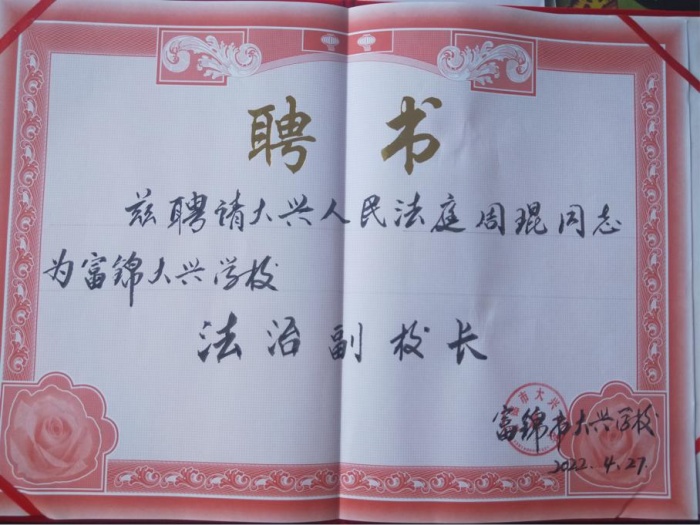 聘书
兹聘请大兴人民法庭周琨同志
为富锦大兴学校
法治副校长
富锦市大兴学校
2022.4.27.